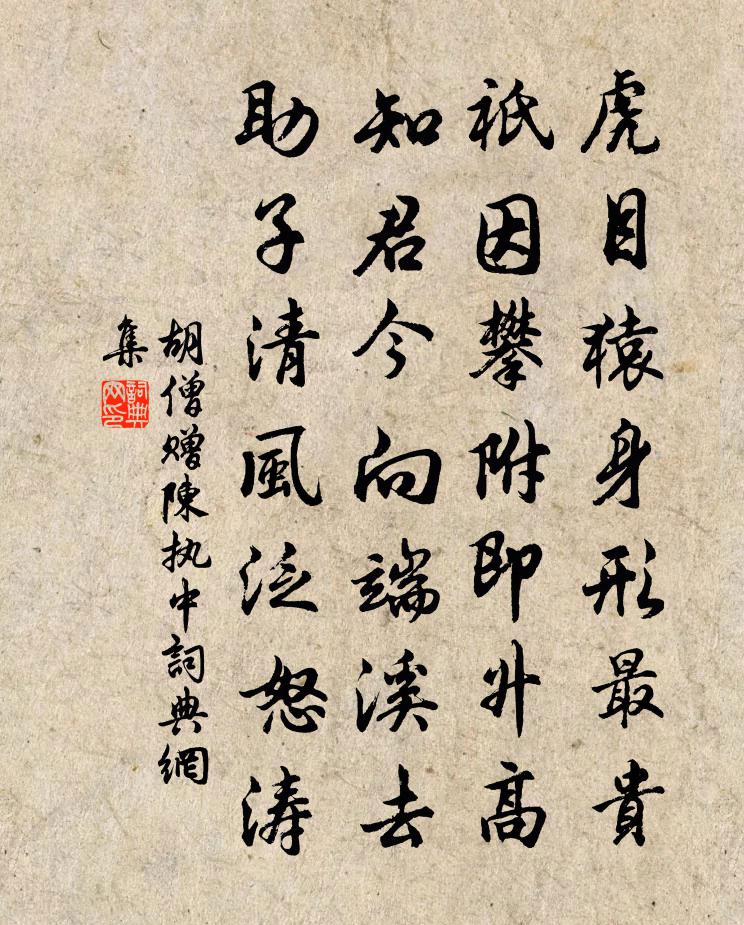 虎目猿身形最貴
祇因攀附即升高
知君今向端溪去
助子清風泛怒濤
胡僧贈陳执中詞典網
集
詞典
网印